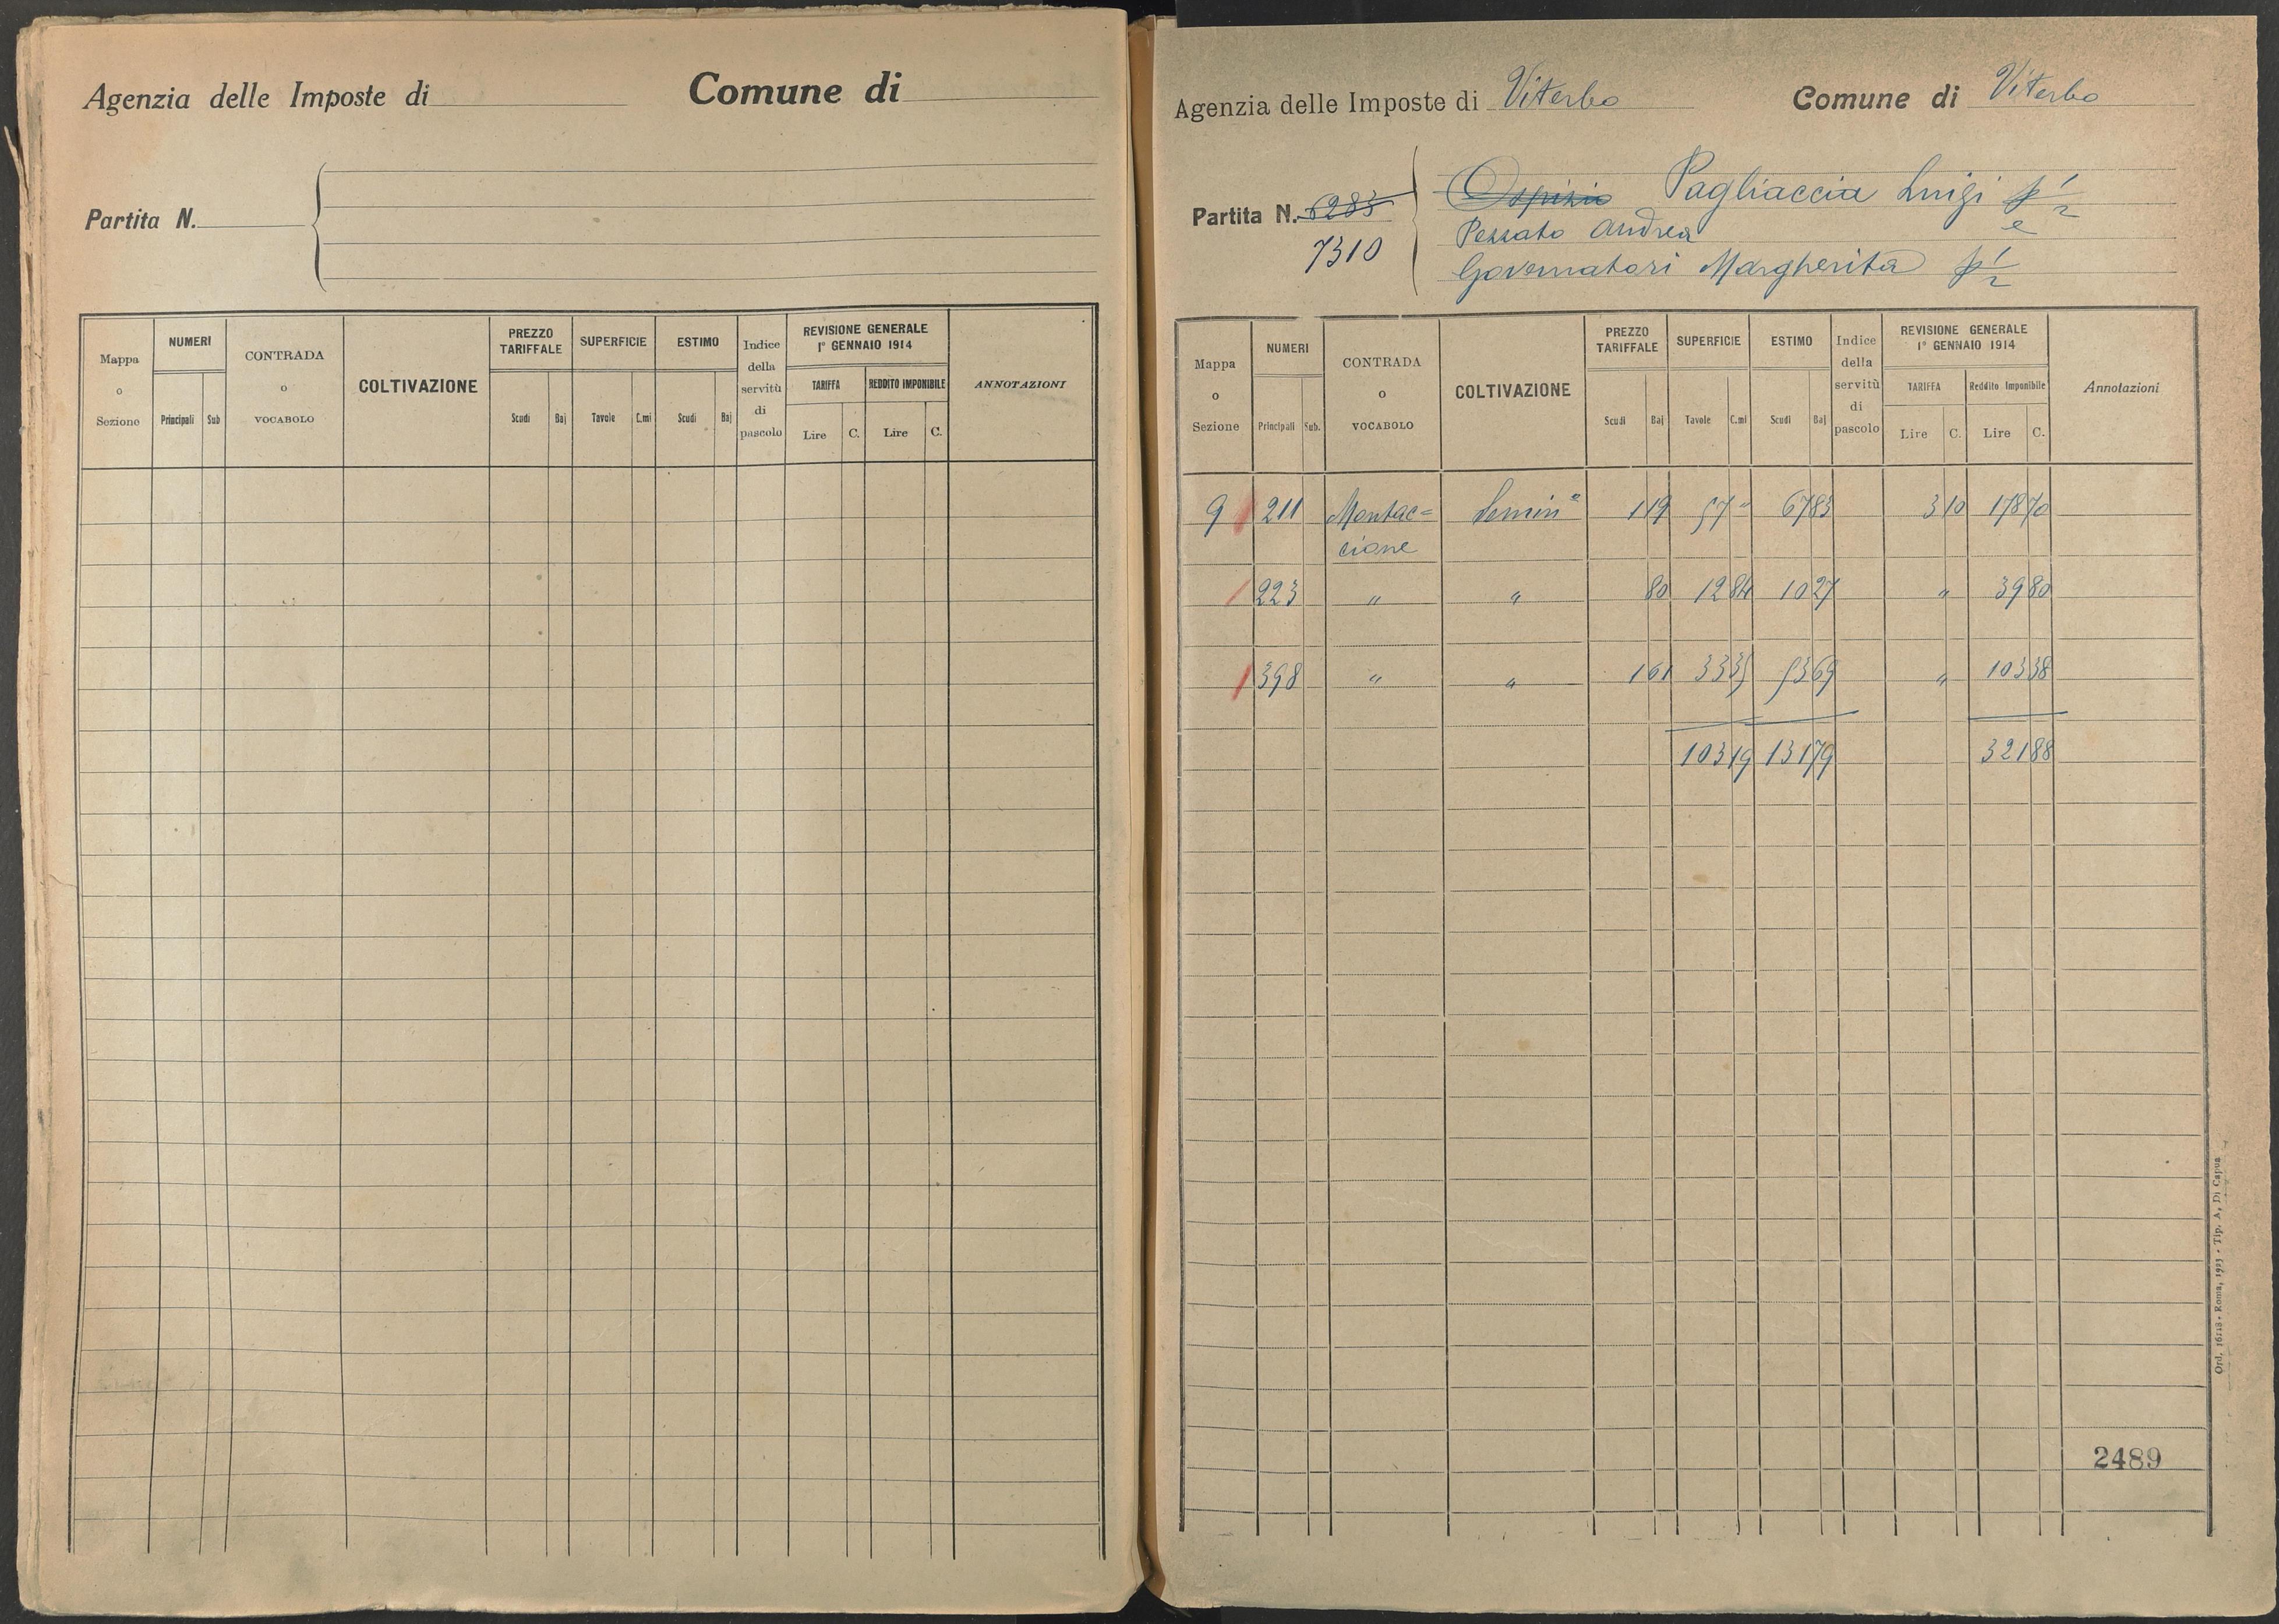 Agenzia delle Imposte di Comune di
Partita N.
Mappa o Sezione NUMERI Principali Sub CONTRADA o VOCABOLO COLTIVAZIONE PREZZO TARIFFALE Scudi Baj SUPERFICIE Tavole C.mi ESTIMO Scudi Baj Indice della servitù di pascolo REVISIONE GENERALE 1° GENNAIO 1914 TARIFFA Lire C. REDDITO IMPONIBILE Lire C. ANNOTAZIONI
Agenzia delle Imposte di Viterbo Comune di Viterbo
Partita N. 6283
7310
Ospizio Pagliaccia Luigi p 1/2
Pezzato Andrea e
Governatori Margherita p 1/2
Mappa o Sezione NUMERI Principali Sub. CONTRADA o VOCABOLO COLTIVAZIONE PREZZO TARIFFALE Scudi Baj SUPERFICIE Tavole C.mi ESTIMO Scudi Baj Indice della servitù di pascolo REVISIONE GENERALE 1° GENNAIO 1914 TARIFFA Lire C. Reddito Imponibile Lire C. Annotazioni
9 211 Montac= Semin° 1 19 57 " 67 83 3 10 178 70
cione
223 " " 80 12 84 10 27 " 39 80
398 " " 1 61 33 35 53 69 " 103 38
103 19 131 79 321 88
2489
Ord. 16118 - Roma, 1923 - Tip. A. Di Capua